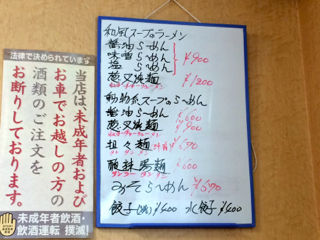 法律で決められています
当店は、未成年者および
お車でお越しの方の
酒類のご注文を
お断りしております。
未成年者飲酒・
飲酒運転 撲滅!
和風スープのラーメン
醤油らーめん
味噌らーめん
塩らーめん
¥900
葱叉焼麺 ¥1200
動物系スープのらーめん
醤油らーめん ¥600
葱叉焼麺 ¥900
担々麺 ¥690
酸辣湯麺 ¥880
みそらーめん ¥690
餃子(焼)¥400 水餃子¥400